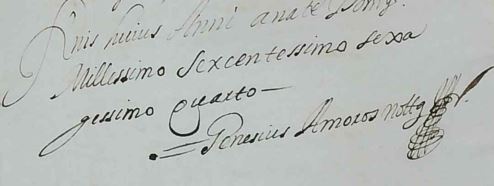 huius Anni anate Domy.
Millessimo Sexcentessimo sexa
gessimo quarto —
Genesius Amoros nottg